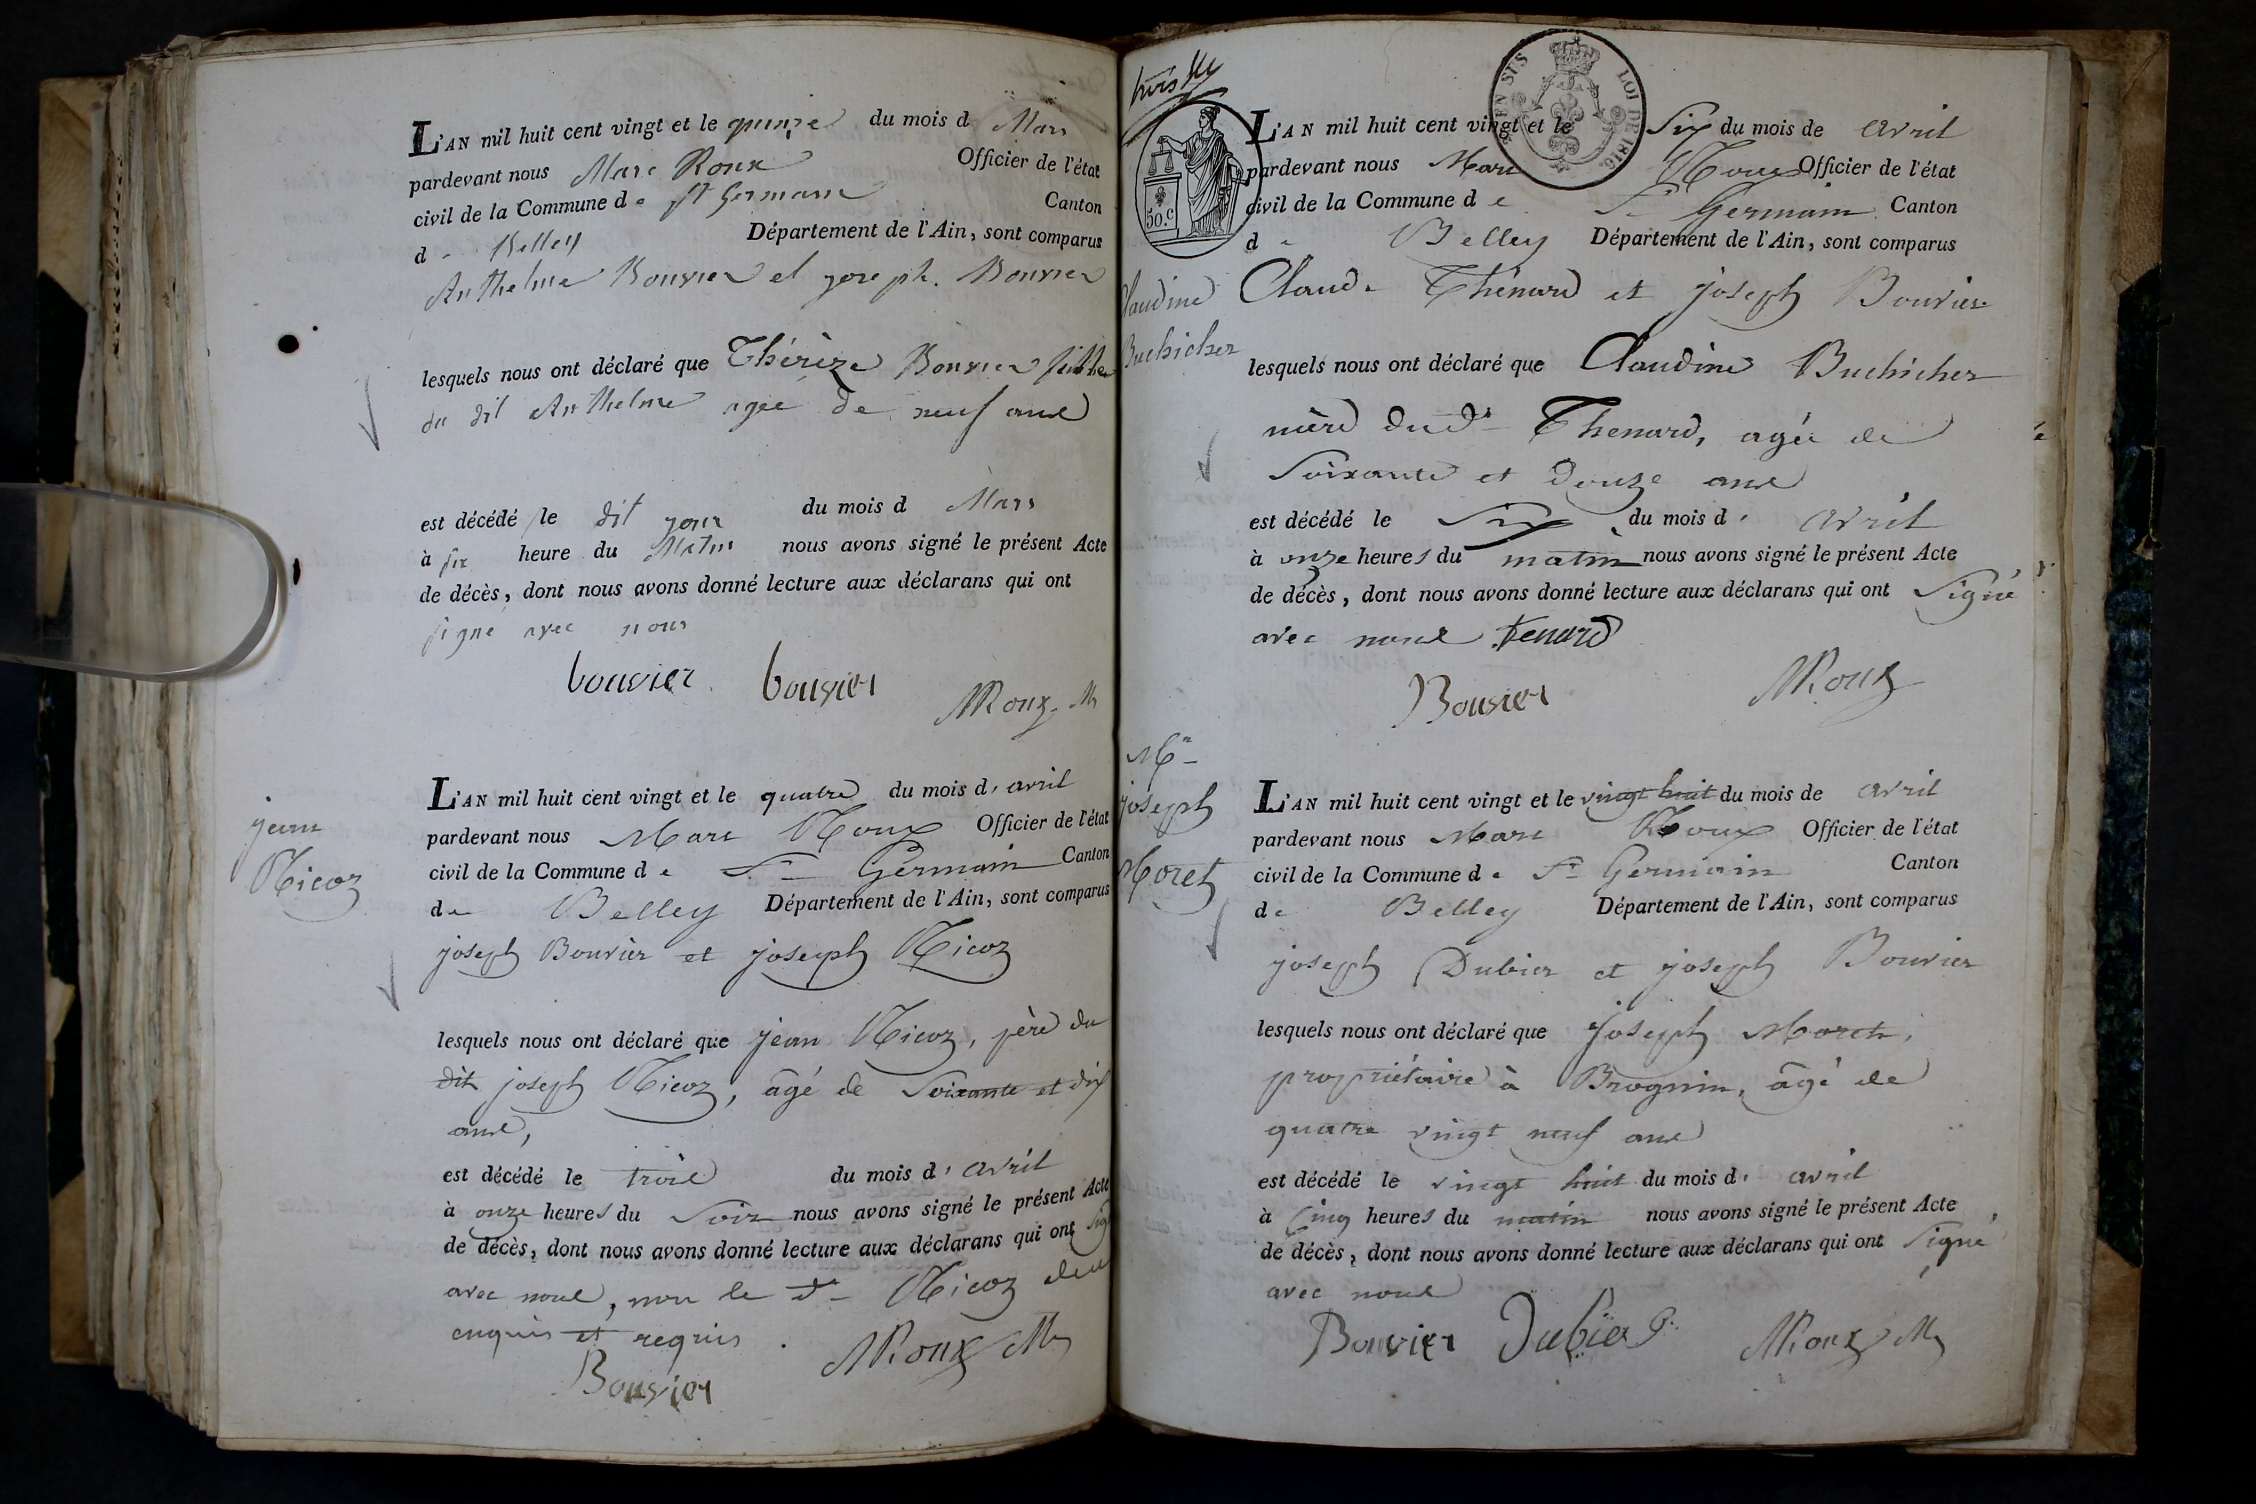 L'AN mil huit cent vingt et le quinze du mois d Mars
pardevant nous Marc Roux Officier de l'état
civil de la Commune de St Germain Canton
d Belley Département de l'Ain, sont comparus
Anthelme Bouvier et joseph Bouvier
lesquels nous ont déclaré que Thérèze Bouvier fille
du dit Anthelme agée de neuf ans
est décédé le dit jour du mois d Mars
à six heure du Matin nous avons signé le présent Acte
de décès, dont nous avons donné lecture aux déclarans qui ont
signe avec nous
bouvier bouvier MRoux M
jean
Nicoz
L'AN mil huit cent vingt et le quatre du mois d'avril
pardevant nous Marc Roux Officier de l'état
civil de la Commune de St Germain Canton
de Belley Département de l'Ain, sont comparus
joseph Bouvier et joseph Nicoz
lesquels nous ont déclaré que jean Nicoz, père du
dit joseph Nicoz, âgé de Soixante et dix
ans,
est décédé le trois du mois d'avril
à onze heures du Soir nous avons signé le présent Acte
de décès, dont nous avons donné lecture aux déclarans qui ont
avec nous, non le dt Nicoz de ce
enquis et requis.
Bouvier MRoux M
BIEN SES LOI DE 1816
50.c
L'AN mil huit cent vingt et le Six du mois de avril
pardevant nous Marc Roux Officier de l'état
civil de la Commune de St Germain Canton
de Belley Département de l'Ain, sont comparus
Claudine
Buchicher
Claude Thénard et joseph Bouvier
lesquels nous ont déclaré que Claudine Buchicher
mère du dt Thenard, agée de
Soixante et Douze ans
est décédé le Six du mois d'avril
à onze heures du matin nous avons signé le présent Acte
de décès, dont nous avons donné lecture aux déclarans qui ont Signé
avec nous tenard
Bouvier MRoux
Mr
joseph
Moret
L'AN mil huit cent vingt et le vingt huit du mois de avril
pardevant nous Marc Roux Officier de l'état
civil de la Commune de St Germain Canton
de Belley Département de l'Ain, sont comparus
joseph Dubier et joseph Bouvier
lesquels nous ont déclaré que joseph Moret,
propriétaire à Brognin, âgé de
quatre vingt neuf ans
est décédé le vingt huit du mois d'avril
à Cinq heures du matin nous avons signé le présent Acte
de décès, dont nous avons donné lecture aux déclarans qui ont Signé
avec nous
Bouvier Dubier MRoux M